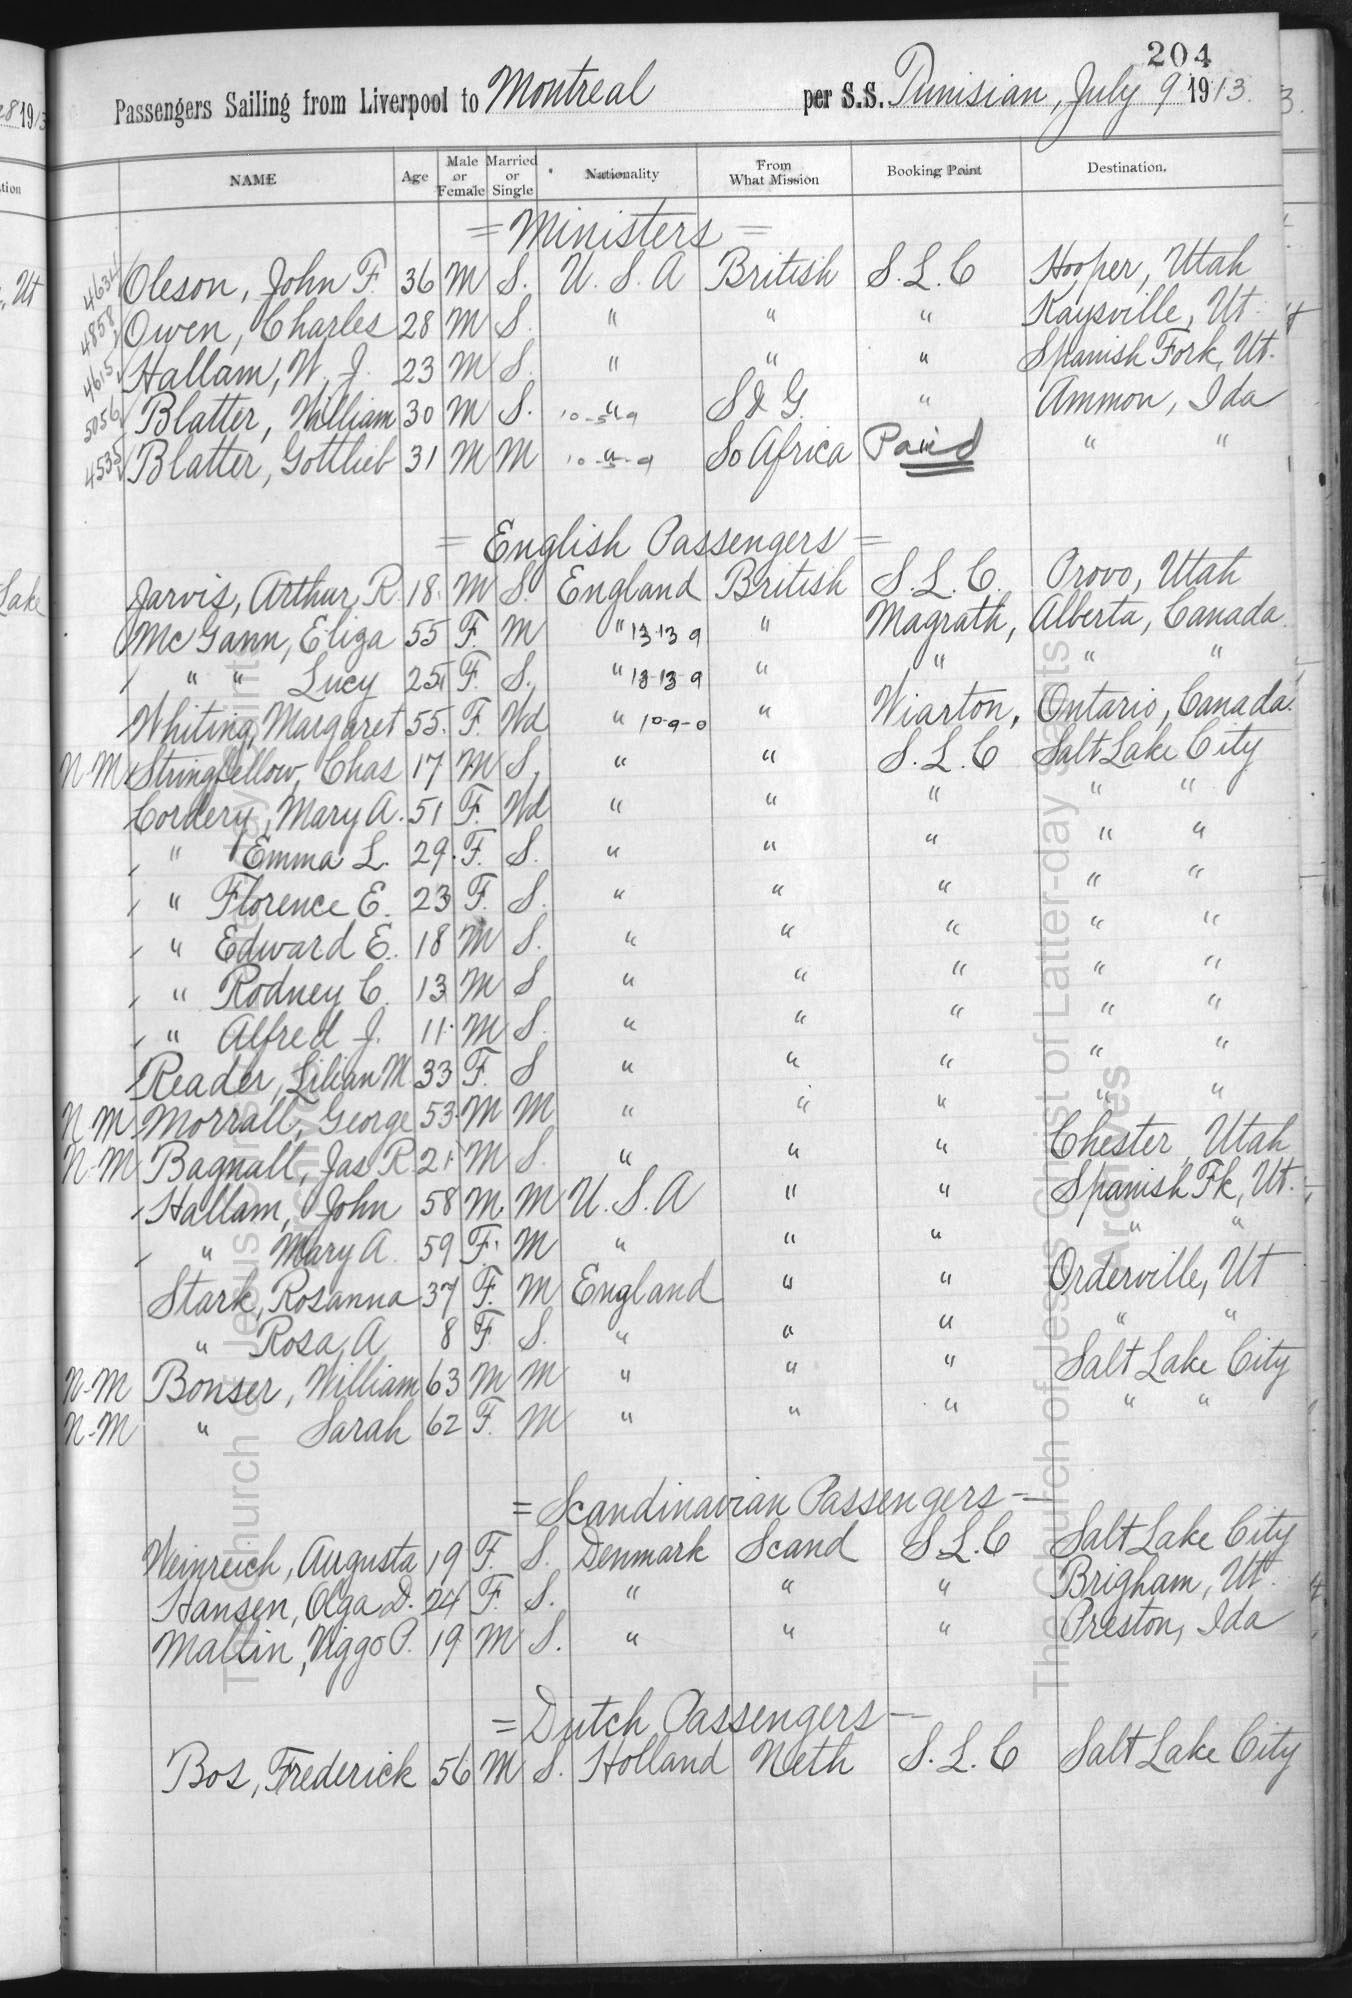 204
Passengers Sailing from Liverpool to Montreal per S.S. Tunisian, July 9 1913.
NAME Age Male or Female Married or Single Nationality From What Mission Booking Point Destination.
= Ministers =
4634 Oleson, John F. 36 M S. U. S. A British S. L. C Hooper, Utah
4858 Owen, Charles 28 M S. " " " Kaysville, Ut.
4615 Hallam, W. J. 23 M S. " " " Spanish Fork, Ut.
5056 Blatter, William 30 M S. " 10-5-9 S & G. " Ammon, Ida
4535 Blatter, Gottlieb 31 M M " 10-5-9 So Africa Paid " "
= English Passengers =
Jarvis, Arthur R. 18. M S. England British S. L. C. Provo, Utah
McGann, Eliza 55 F. M " 13-13 9 " Magrath, Alberta, Canada
" " Lucy 25 F. S. " 13-13 9 " " " "
Whiting, Margaret 55. F. Wd " 10-9-0 " Wiarton, Ontario, Canada.
N-M Stringfellow, Chas 17 M S. " " S. L. C Salt Lake City
Cordery, Mary A. 51 F. Wd " " " " "
" Emma L. 29. F. S. " " " " "
" Florence E. 23 F. S. " " " " "
" Edward E. 18 M S. " " " " "
" Rodney C. 13 M S " " " " "
" Alfred J. 11. M S. " " " " "
Reader, Lilian M. 33 F. S " " " " "
N-M Morrall, George 53. M M " " " " "
N-M Bagnall, Jas R 21. M S. " " " Chester, Utah
Hallam, John 58 M. M U. S. A " " Spanish Fk, Ut.
" Mary A. 59 F. M " " " " "
Stark, Rosanna 37 F. M England " " Orderville, Ut
" Rosa A 8 F S. " " " " "
N-M Bonser, William 63 M M " " " Salt Lake City
N-M " Sarah 62 F. M " " " " "
= Scandinavian Passengers =
Weinreich, Augusta 19 F. S. Denmark Scand S. L. C Salt Lake City
Hansen, Olga D. 24 F. S. " " " Brigham, Ut.
Mallin, Viggo P. 19 M S. " " " Preston, Ida
= Dutch Passengers =
Bos, Frederick 56 M S. Holland Neth S. L. C Salt Lake City
The Church of Jesus Christ of Latter-day Saints
Archives
The Church of Jesus Christ of Latter-day Saints
Archives